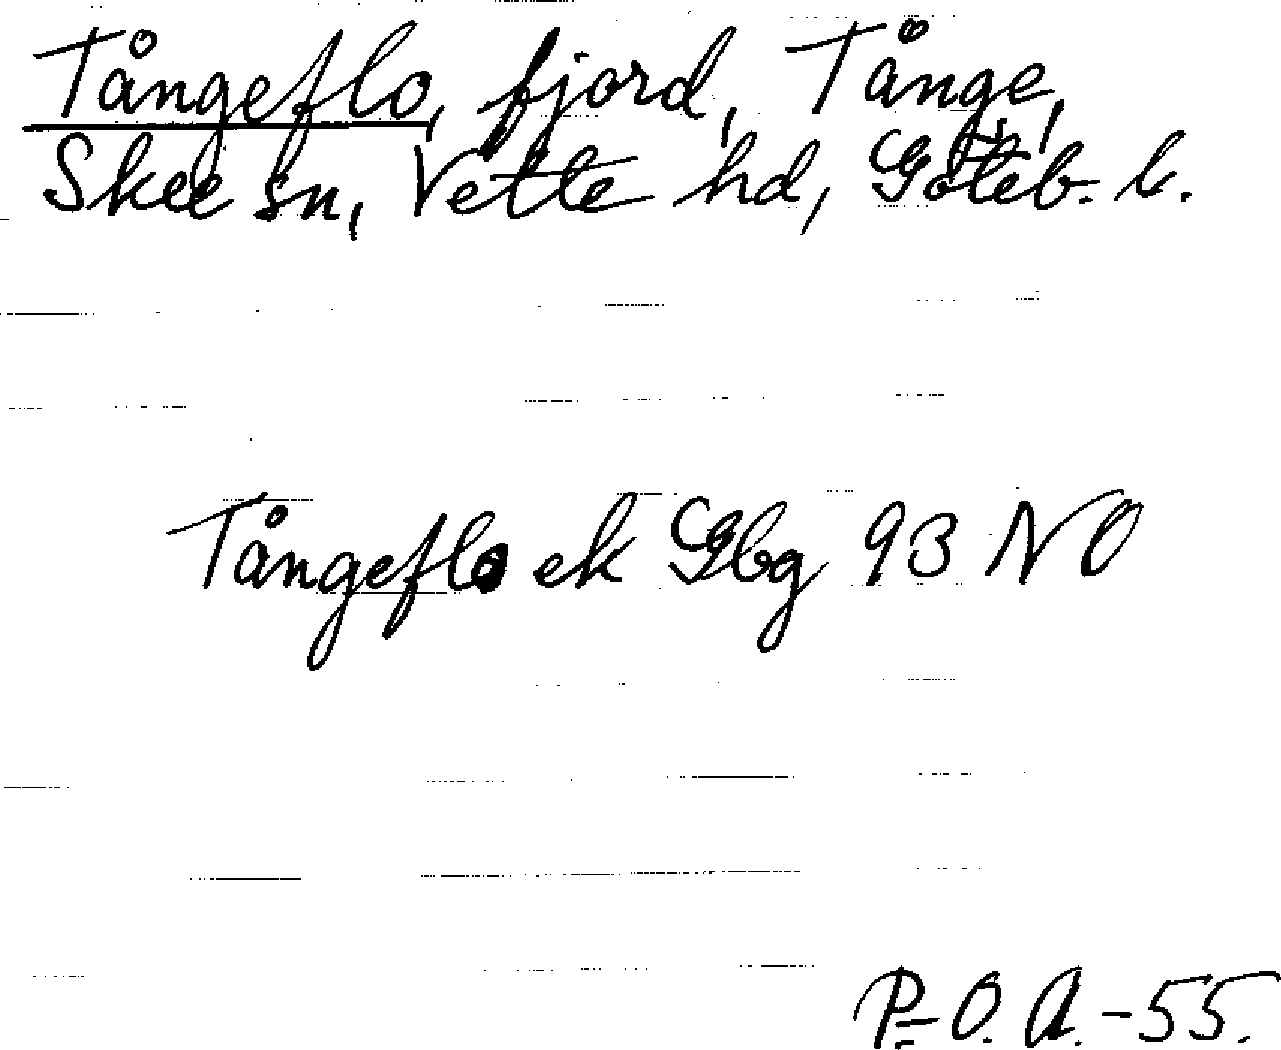 Tångeflo, fjord, Tånge,
Skee sn, Vette hd, Göteb. l.
Tångeflo ek Gbg 93 NO
P.-O. A. -55.